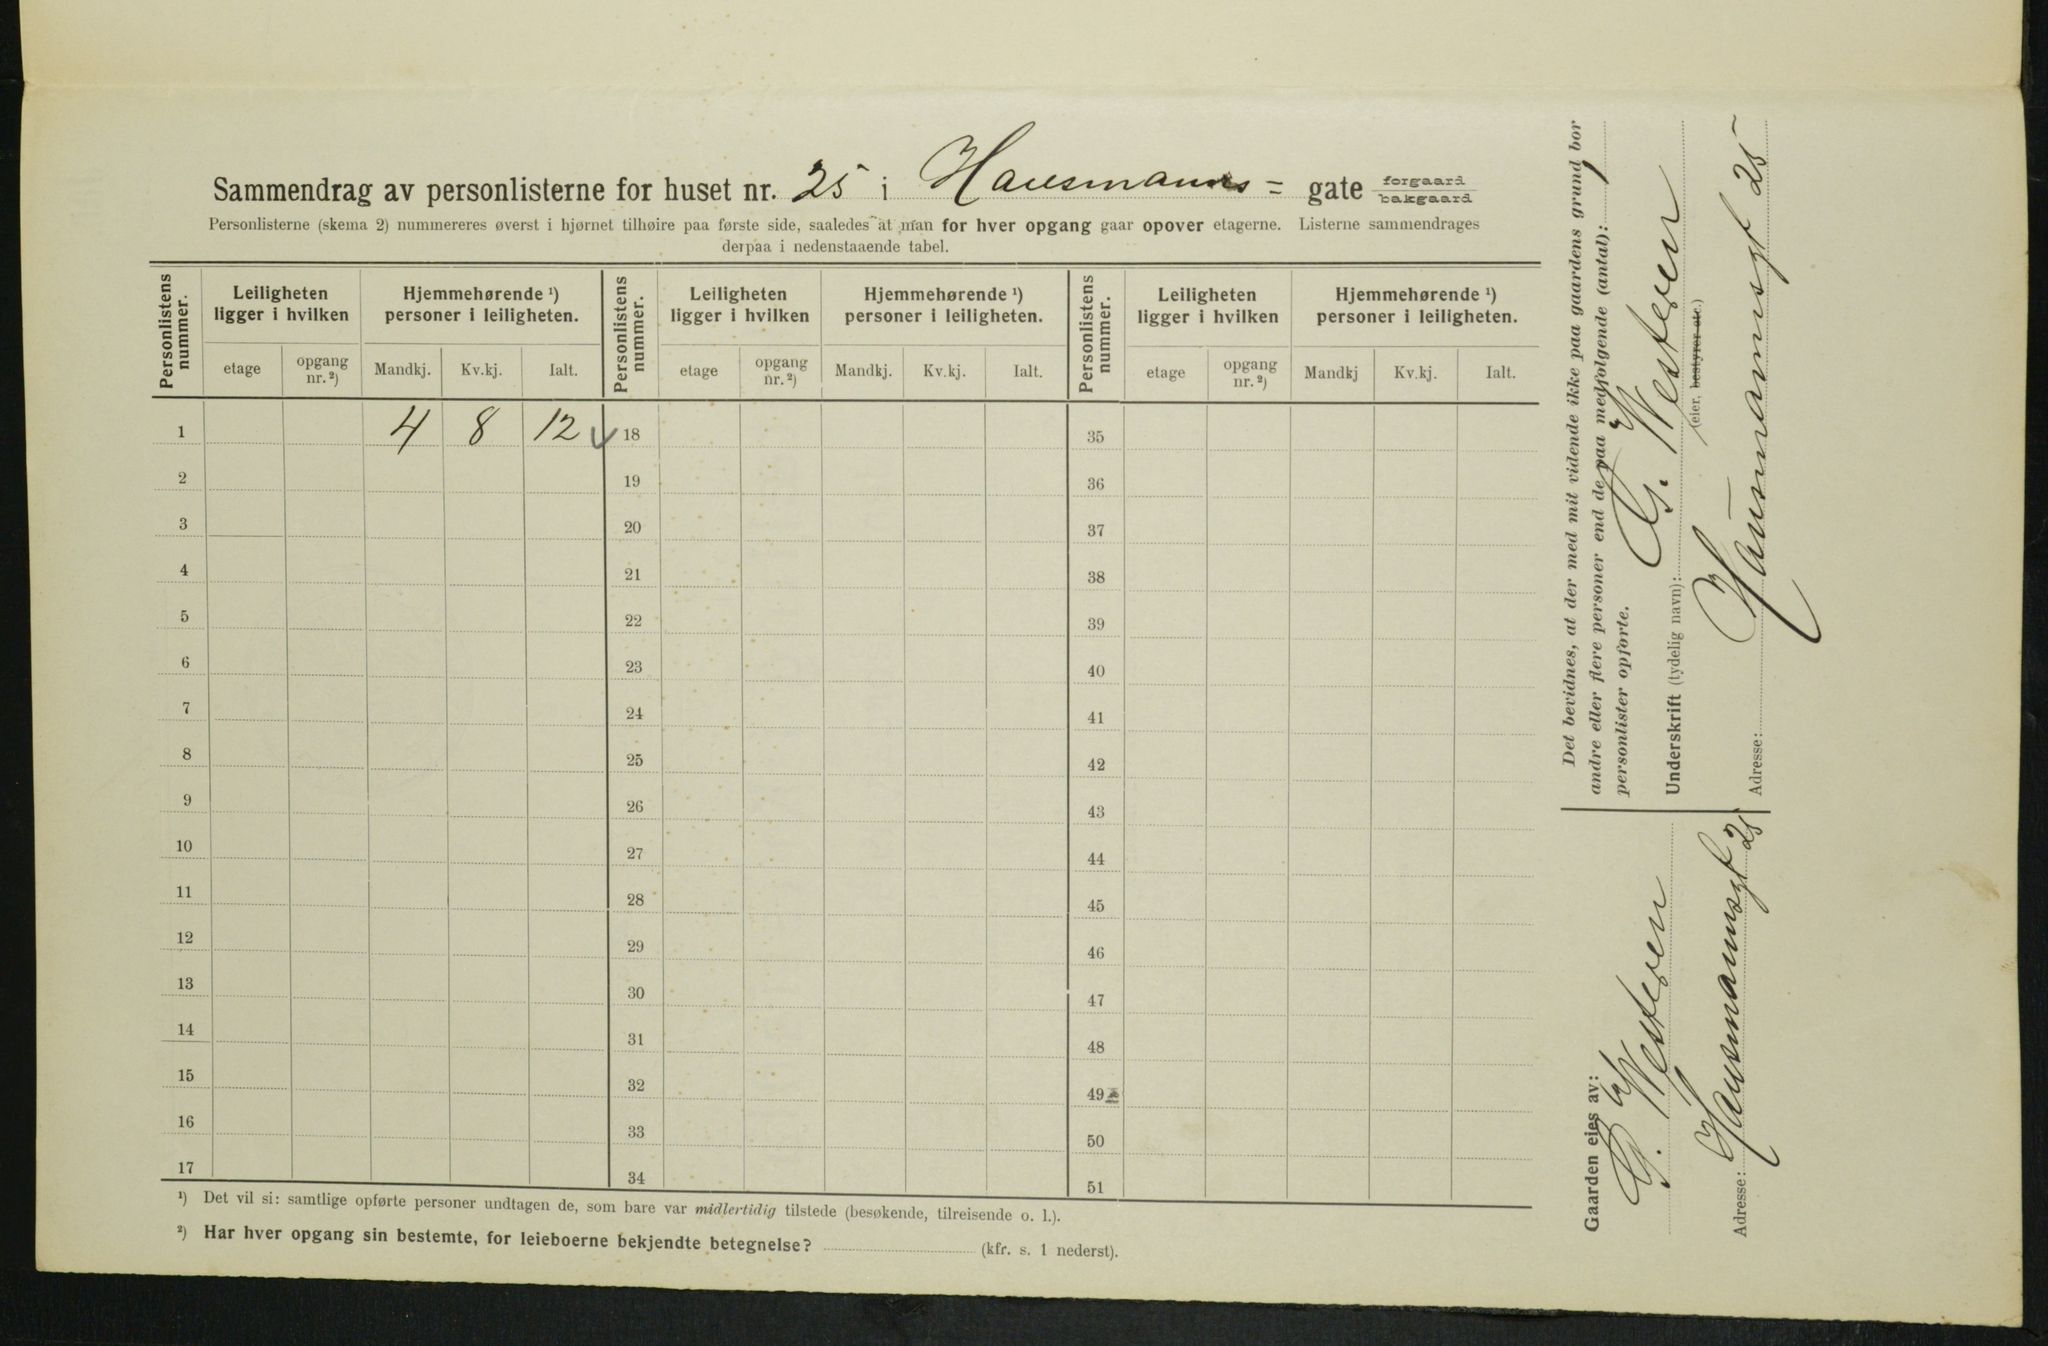 Sammendrag av personlisterne for huset nr. 25 i Hausmanns= gate forgaard bakgaard
Personlisterne (skema 2) nummereres øverst i hjørnet tilhøire paa første side, saaledes at man for hver opgang gaar opover etagerne. Listerne sammendrages
derpaa i nedenstaaende tabel.
Personlistens nummer. Leiligheten ligger i hvilken Hjemmehørende ¹) personer i leiligheten. Personlistens nummer. Leiligheten ligger i hvilken Hjemmehørende ¹) personer i leiligheten. Personlistens nummer. Leiligheten ligger i hvilken Hjemmehørende ¹) personer i leiligheten.
etage opgang nr. ²) Mandkj. Kv.kj. Ialt. etage opgang nr. ²) Mandkj. Kv.kj. Ialt. etage opgang nr. ²) Mandkj Kv.kj. Ialt.
1 4 8 12 18 35
2 19 36
3 20 37
4 21 38
5 22 39
6 23 40
7 24 41
8 25 42
9 26 43
10 27 44
11 28 45
12 29 46
13 30 47
14 31 48
15 32 49
16 33 50
17 34 51
¹) Det vil si: samtlige opførte personer undtagen de, som bare var midlertidig tilstede (besøkende, tilreisende o. l.).
²) Har hver opgang sin bestemte, for leieboerne bekjendte betegnelse? (kfr. s. 1 nederst).
Det bevidnes, at der med mit vidende ikke paa gaardens grund bor
andre eller flere personer end de paa medfølgende (antal): 1
personlister opførte.
Underskrift (tydelig navn): G. Westeren
(eier, bestyrer etc.)
Adresse: Hausmannsgt 25
Gaarden eies av:
G. Westeren
Adresse: Hausmannsgt 25